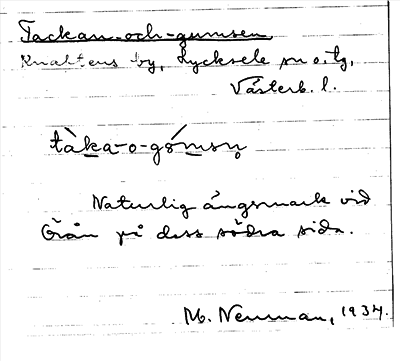 Tackan-och-gumsen
Knaften s by, Lycksele sn o. tg,
Västerb. l.
tàka-o-gómsn̥
Naturlig ängsmark vid
Örån på dess södra sida.
M. Neuman, 1934.